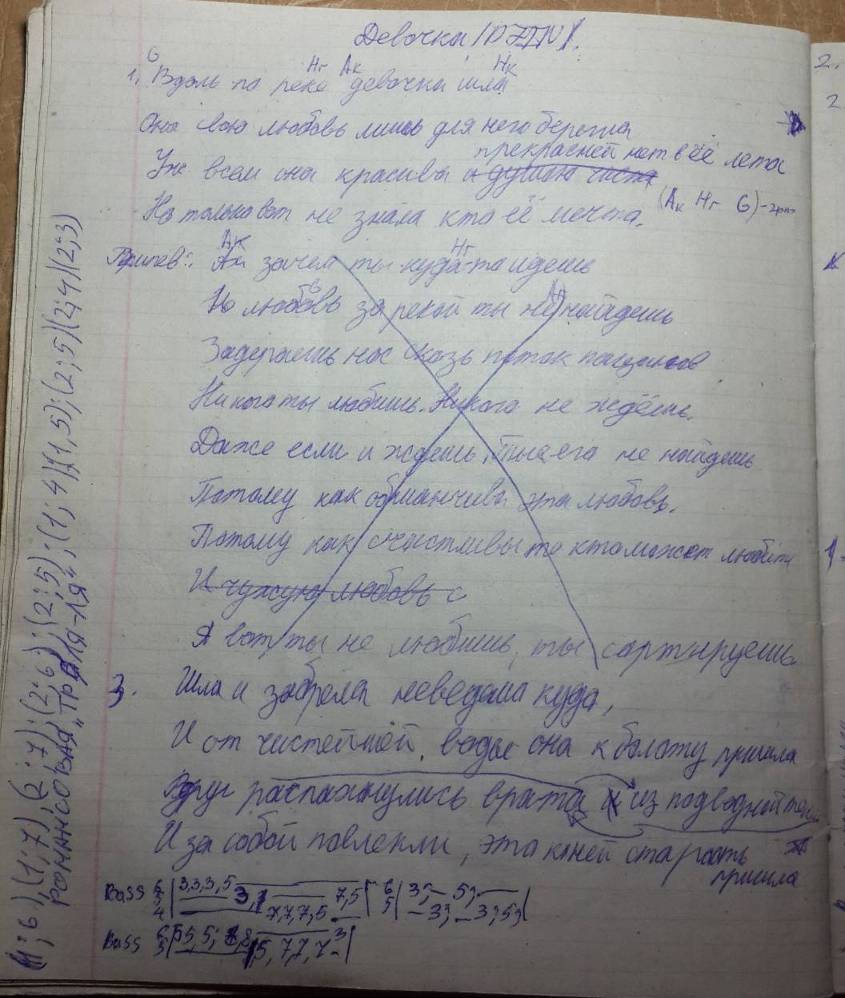 Девочка
G Hг Aк Hк
1. Вдоль по реке девочка шла
Она свою любовь лишь для него берегла
прекрасней нет в её лета
Уж всем она красива и душою чиста
(Aк Hг G)
Но только вот не знала кто её мечта.
Aк Hг
Припев: Ах зачем ты куда-то идёшь
G
Но любовь за рекой ты не найдёшь
Задираешь нос сквозь поток пацанов
Никого ты любишь. Никого не ждёшь.
Даже если и ждёшь, ты его не найдёшь
Потому как обманчива эта любовь.
Потому как счастливы те кто может любить
И чужую любовь с
А вот ты не любишь, ты сортируешь
3. Шла и забрела неведома куда,
И от чистейшей воды она к болоту пришла
Вдруг распахнулись врата и из подводной
И за собой повлекли, эта старость
пришла
Bass 3,3,3,5 7,5 3; 5;
7,7,7,5 3; 3; 5;
Bass 5,5; 5,7,7,7
(1;6),(1;7),(2;7);(2;6);(2;5);(1;4)(1,5);(2;5)(2;4)(2;3)
РОМАНСОВАЯ „ТРАЛЯ-ЛЯ“